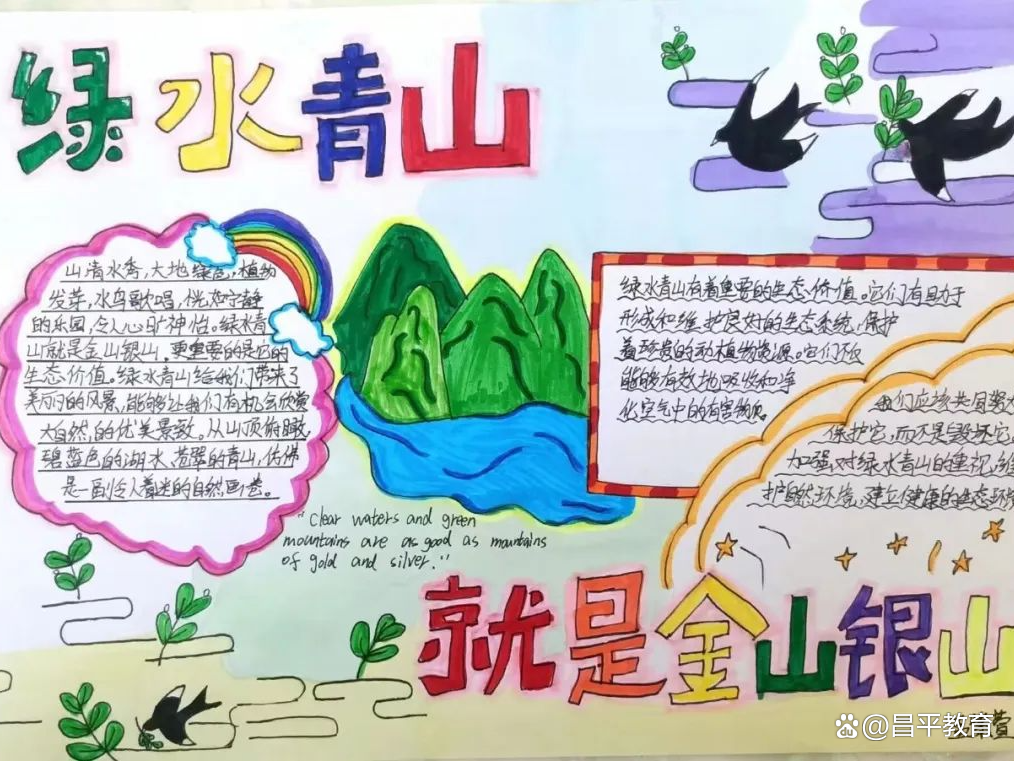 绿水青山
山清水秀，大地绿色，植物
发芽，水鸟歌唱，恍如宁静
的乐园，令人心旷神怡。绿水青
山就是金山银山，更重要的是它的
生态价值。绿水青山给我们带来了
美丽的风景，能够让我们有机会欣赏
大自然的优美景致。从山顶俯瞰，
碧蓝色的湖水、苍翠的青山，仿佛
是一画令人着迷的自然画卷。
绿水青山有着重要的生态价值。它们有助于
形成和维护良好的生态系统，保护
着珍贵的动植物资源。它们不仅
能够有效地吸收和净
化空气中的有害物质
我们应该共同努力
保护它，而不是毁坏它。
加强对绿水青山的重视，维
护自然环境，建立健康的生态环境
"Clear waters and green
mountains are as good as mountains
of gold and silver."
就是金山银山
@昌平教育